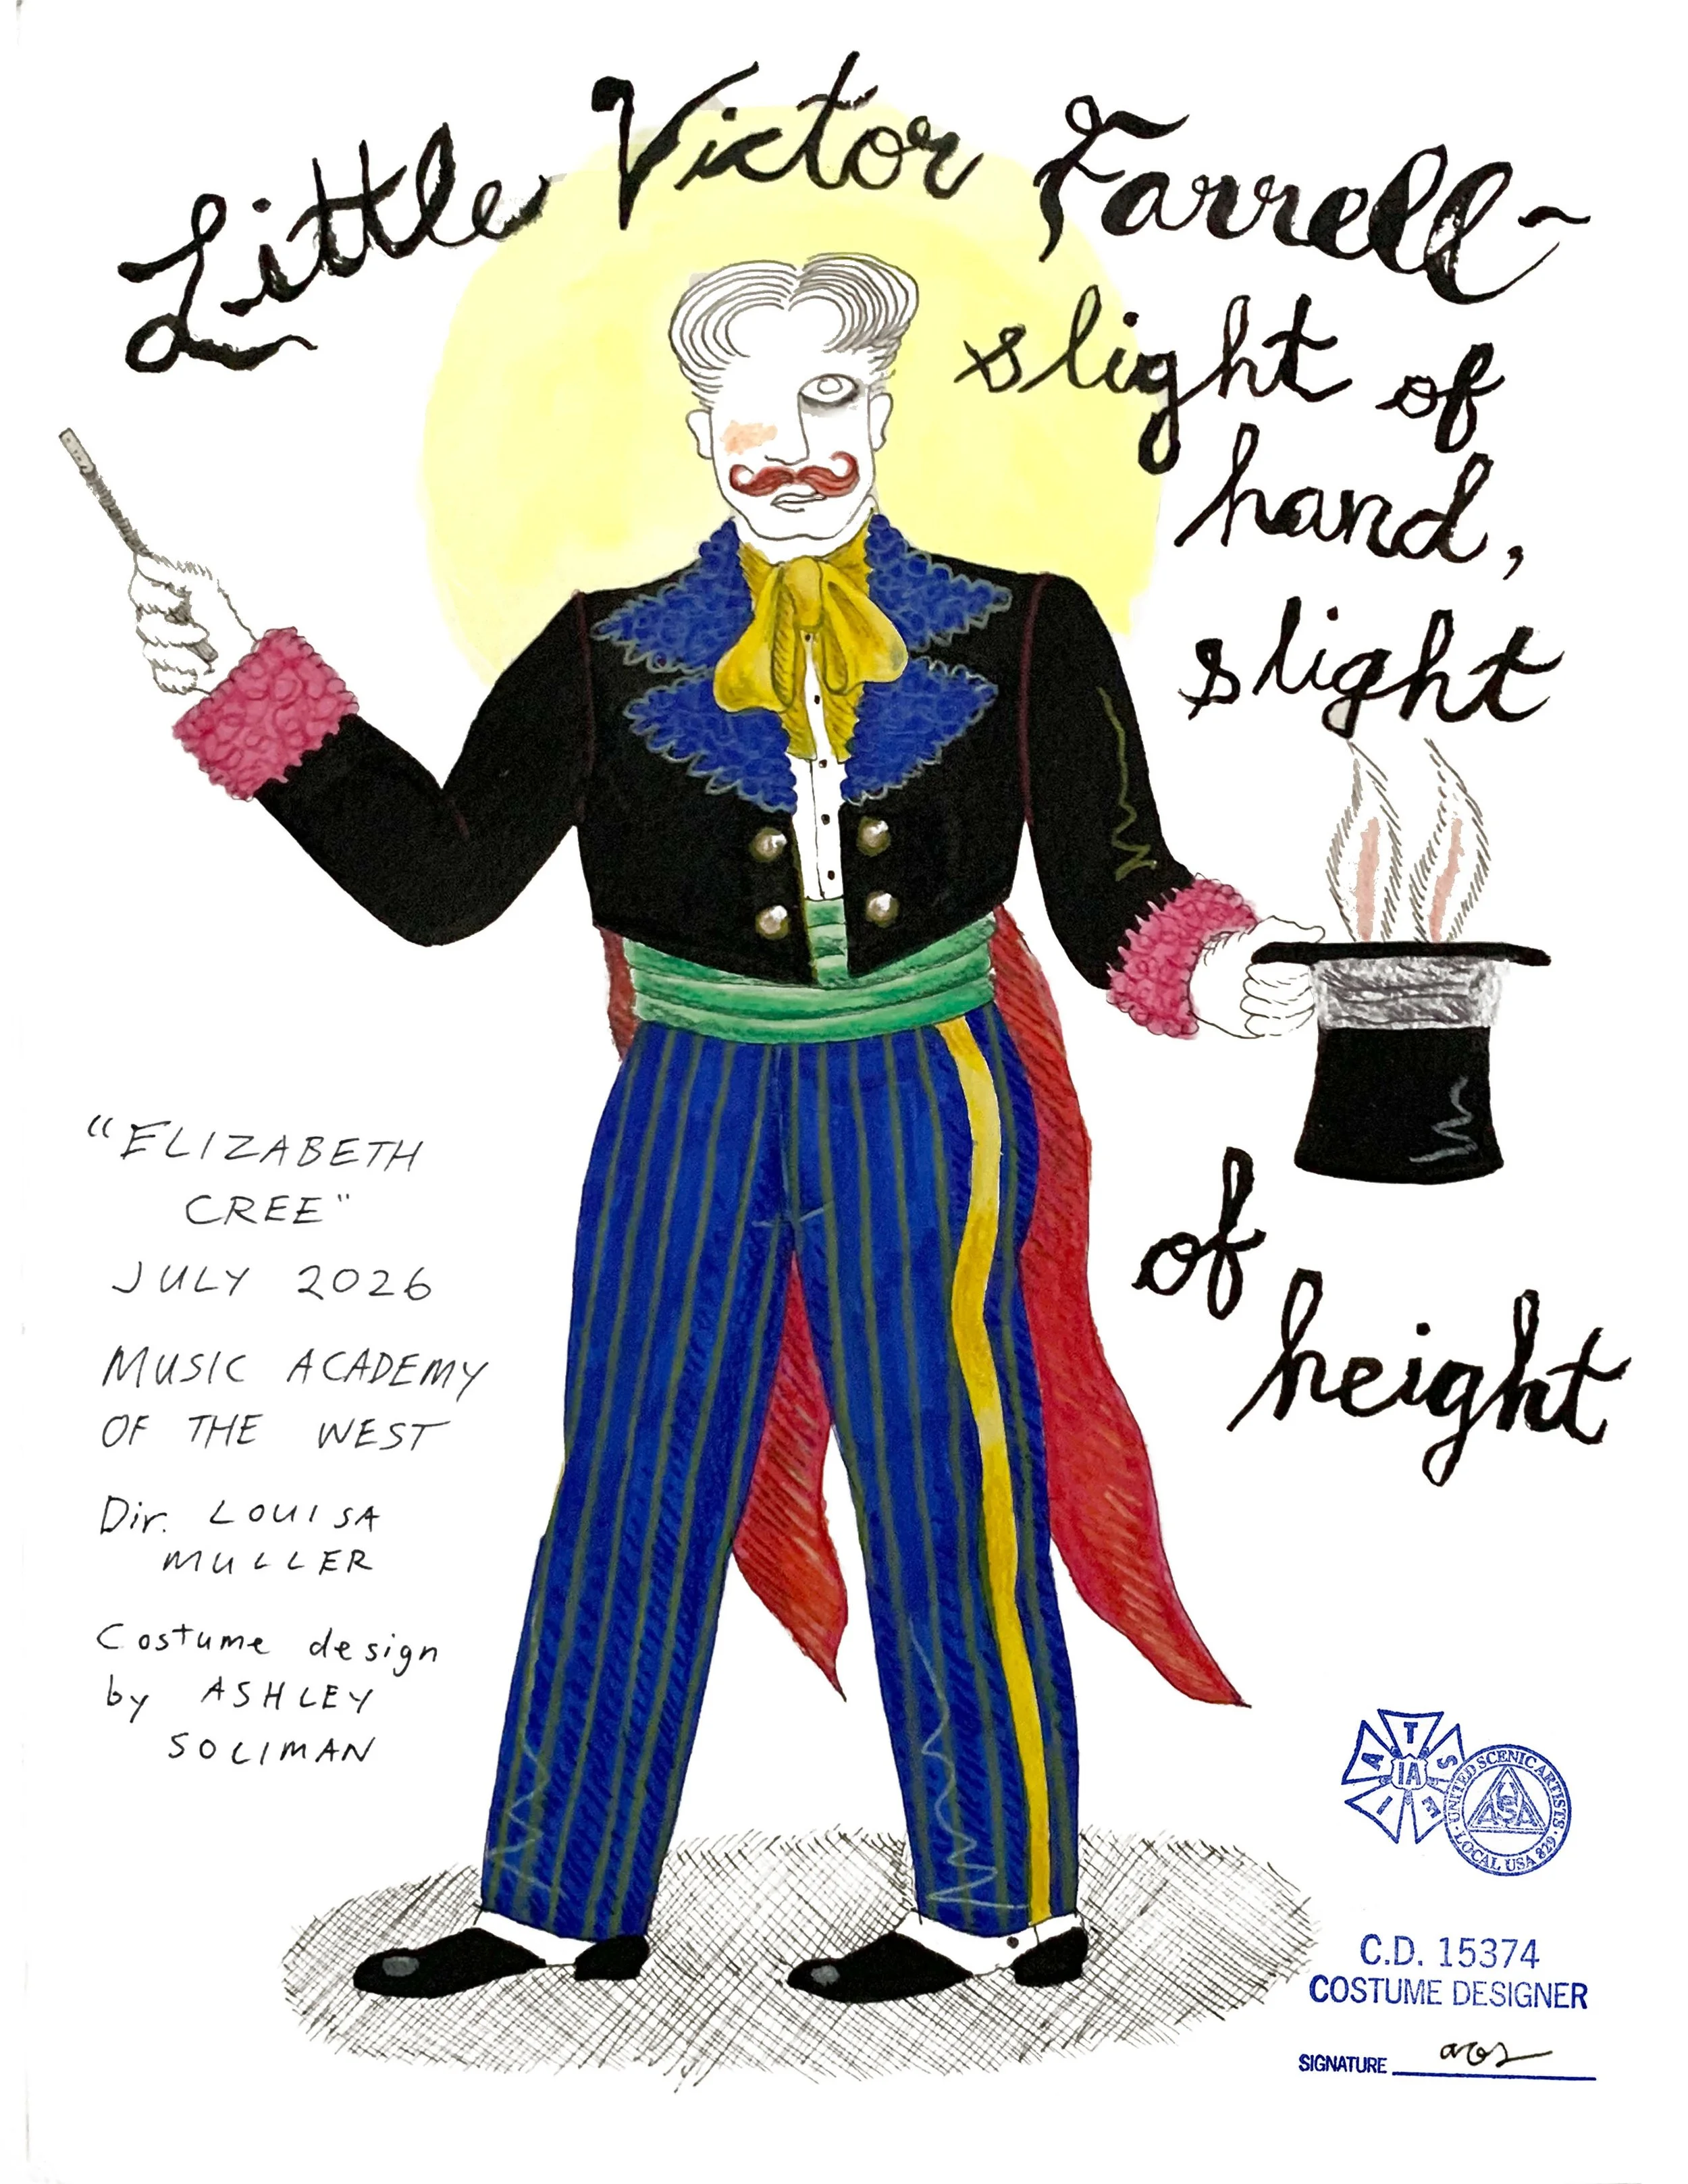 Little Victor Farrell~
slight of
hand,
slight
of
height
"ELIZABETH
CREE"
JULY 2026
MUSIC ACADEMY
OF THE WEST
Dir. LOUISA
MULLER
Costume design
by ASHLEY
SOLIMAN
I A T S E
IA
UNITED SCENIC ARTISTS · LOCAL USA 829 ·
USA
C.D. 15374
COSTUME DESIGNER
SIGNATURE